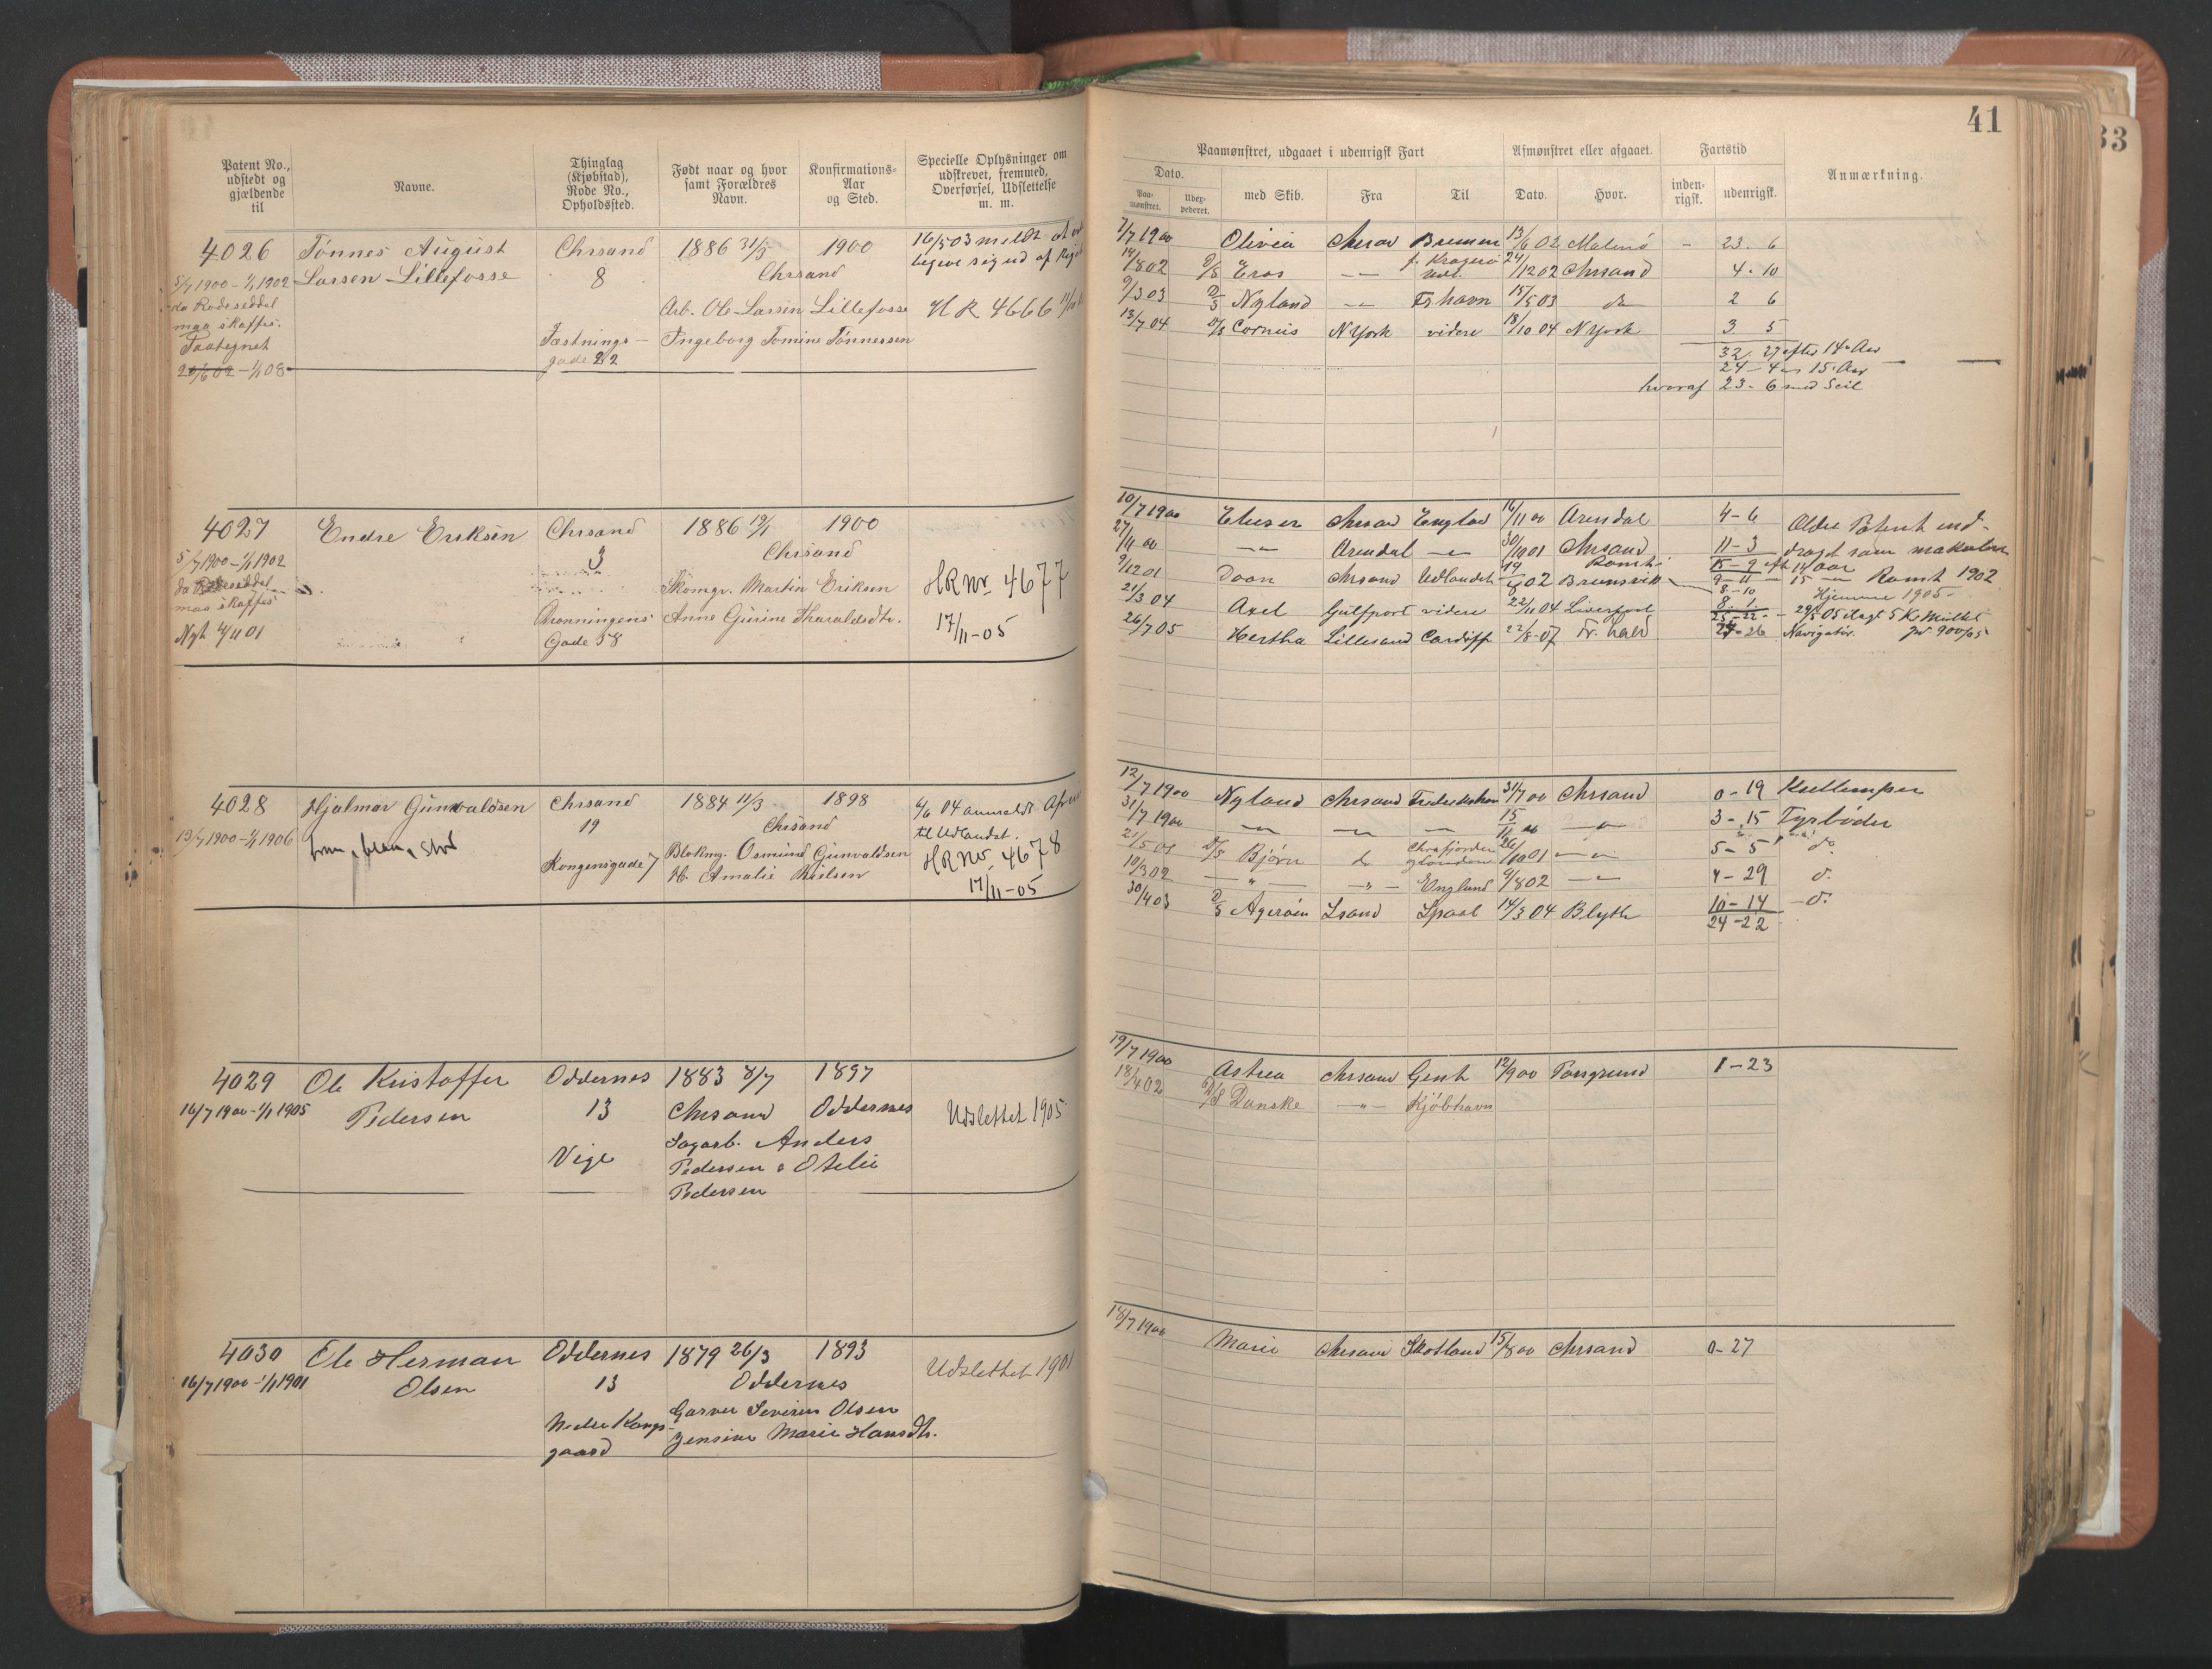 41
33
Patent No., udstedt og gjældende til
Navne.
Thinglag (Kjøbstad), Rode No., Opholdssted.
Født naar og hvor samt Forældres Navn.
Konfirmations-Aar og Sted.
Specielle Oplysninger om udskrevet, fremmed, Overførsel, Udslettelse m. m.
Paamønstret, udgaaet i udenrigsk Fart
Afmønstret eller afgaaet.
Fartstid
Anmærkning.
Dato.
Paa-mønstret.
med Skib.
Fra
Til
Dato.
Hvor.
inden-rigsk.
udenrigsk.
4026 Tønnes August Chrsand 1886 31/5 1900 16/5 03 meldt at
5/7 1900 - 1/1 1902 Larsen Lillefosse 8 Chrsand begive sig ud af
do Rodeseddel Arb. Ole Larsen Lillefosse HR 4666
maa skaffes.
Paategnet Fæstnings- Ingeborg Tomine Tønnessen
20/6 02 - 1/1 08 gade 22
7/7 1900 Olivia Chrsan Bremen 13/6 02 Malmö - 23. 6
14/8 02 D/S Eros -"- f. Kragerø 24/12 02 Chrsand 4 - 10
9/3 03 D/S Nyland -"- Fr.havn 15/5 03 do 2 6
13/7 04 D/S Cornus N York videre 18/10 04 N York 3 5
32. 27 efter 14 Aar
24 - 4 " 15 Aar
hvoraf 23 - 6 med Seil
4027 Endre Eriksen Chrsand 1886 19/1 1900
5/7 1900 - 1/1 1902 3 Chrsand
do Rodeseddel Skomgr. Martin Eriksen HR Nr. 4677
maa skaffes Dronningens Anne Gurine Tharaldsdtr. 17/11-05
Nyt 4/11 01 Gade 58
10/7 1900 Elieser Chrsan England 16/11 00 Arendal 4 - 6 Ældre Patent ind-
27/11 00 -"- Arendal -"- 30/10 01 Chrsand 11 - 3 dragt som makuleret
9/12 01 Daan Chrsand Udlandet 19/9 02 Brunsvik 15 - 9 eft 14 Aar
9 - 11 - 15 -"- Rømt 1902
8 - 10 Hjemme 1905
21/3 04 Axel Gulfport videre 22/11 04 Liverpool 8. 1.
25 - 22 - 29/5 05 ilagt 5 Kr Mulkt
26/7 05 Hertha Lillesand Cardiff 22/8-07 Fr. hald 24 - 26 Navigatør. 900/05
4028 Hjalmar Gunvaldsen Chrsand 1884 11/3 1898 4/6 04 anmeldt
13/7 1900 - 1/1 1906 19 Chrsand til Udlandet.
Kongensgade 7 Blokmg. Osmund Gunvaldsen HR Nr. 4678
H. Amalie Nielsen 17/11-05
12/7 1900 Nyland Chrsand Frederikshavn 31/7 00 Chrsand 0 - 19 Kullemper
31/7 1900 -"- -"- -"- 15/11 00 -"- 3 - 15 Fyrbøder
2/5 01 D/S Bjørn do Chrafjorden 26/10 01 -"- 5 - 5 do
10/3 02 -"- -"- England 9/8 02 -"- 4 - 29 do
30/4 03 D/S Agerøen Xsand 14/3 04 Blyth 10 - 14 do
24 - 22
4029 Ole Kristoffer Oddernes 1883 8/7 1897
16/7 1900 - 1/1 1905 Pedersen 13 Chrsand Oddernes Udslettet 1905
Vige Sagarb. Anders
Pedersen o Otelie
Pedersen
19/7 1900 Astrea Chrsand Gent 12/9 00 Porsgrund 1 - 23
18/4 02 D/S Danske -"- Kjøbhavn
4030 Ole Herman Oddernes 1879 26/3 1893
16/7 1900 - 1/1 1901 Olsen 13 Oddernes Udslettet 1901
Nedre Kongs- Garver Severin Olsen
gaard Jensine Marie Hansdtr.
18/7 1900 Marie Chrsand Skotland 15/8 00 Chrsand 0 - 27